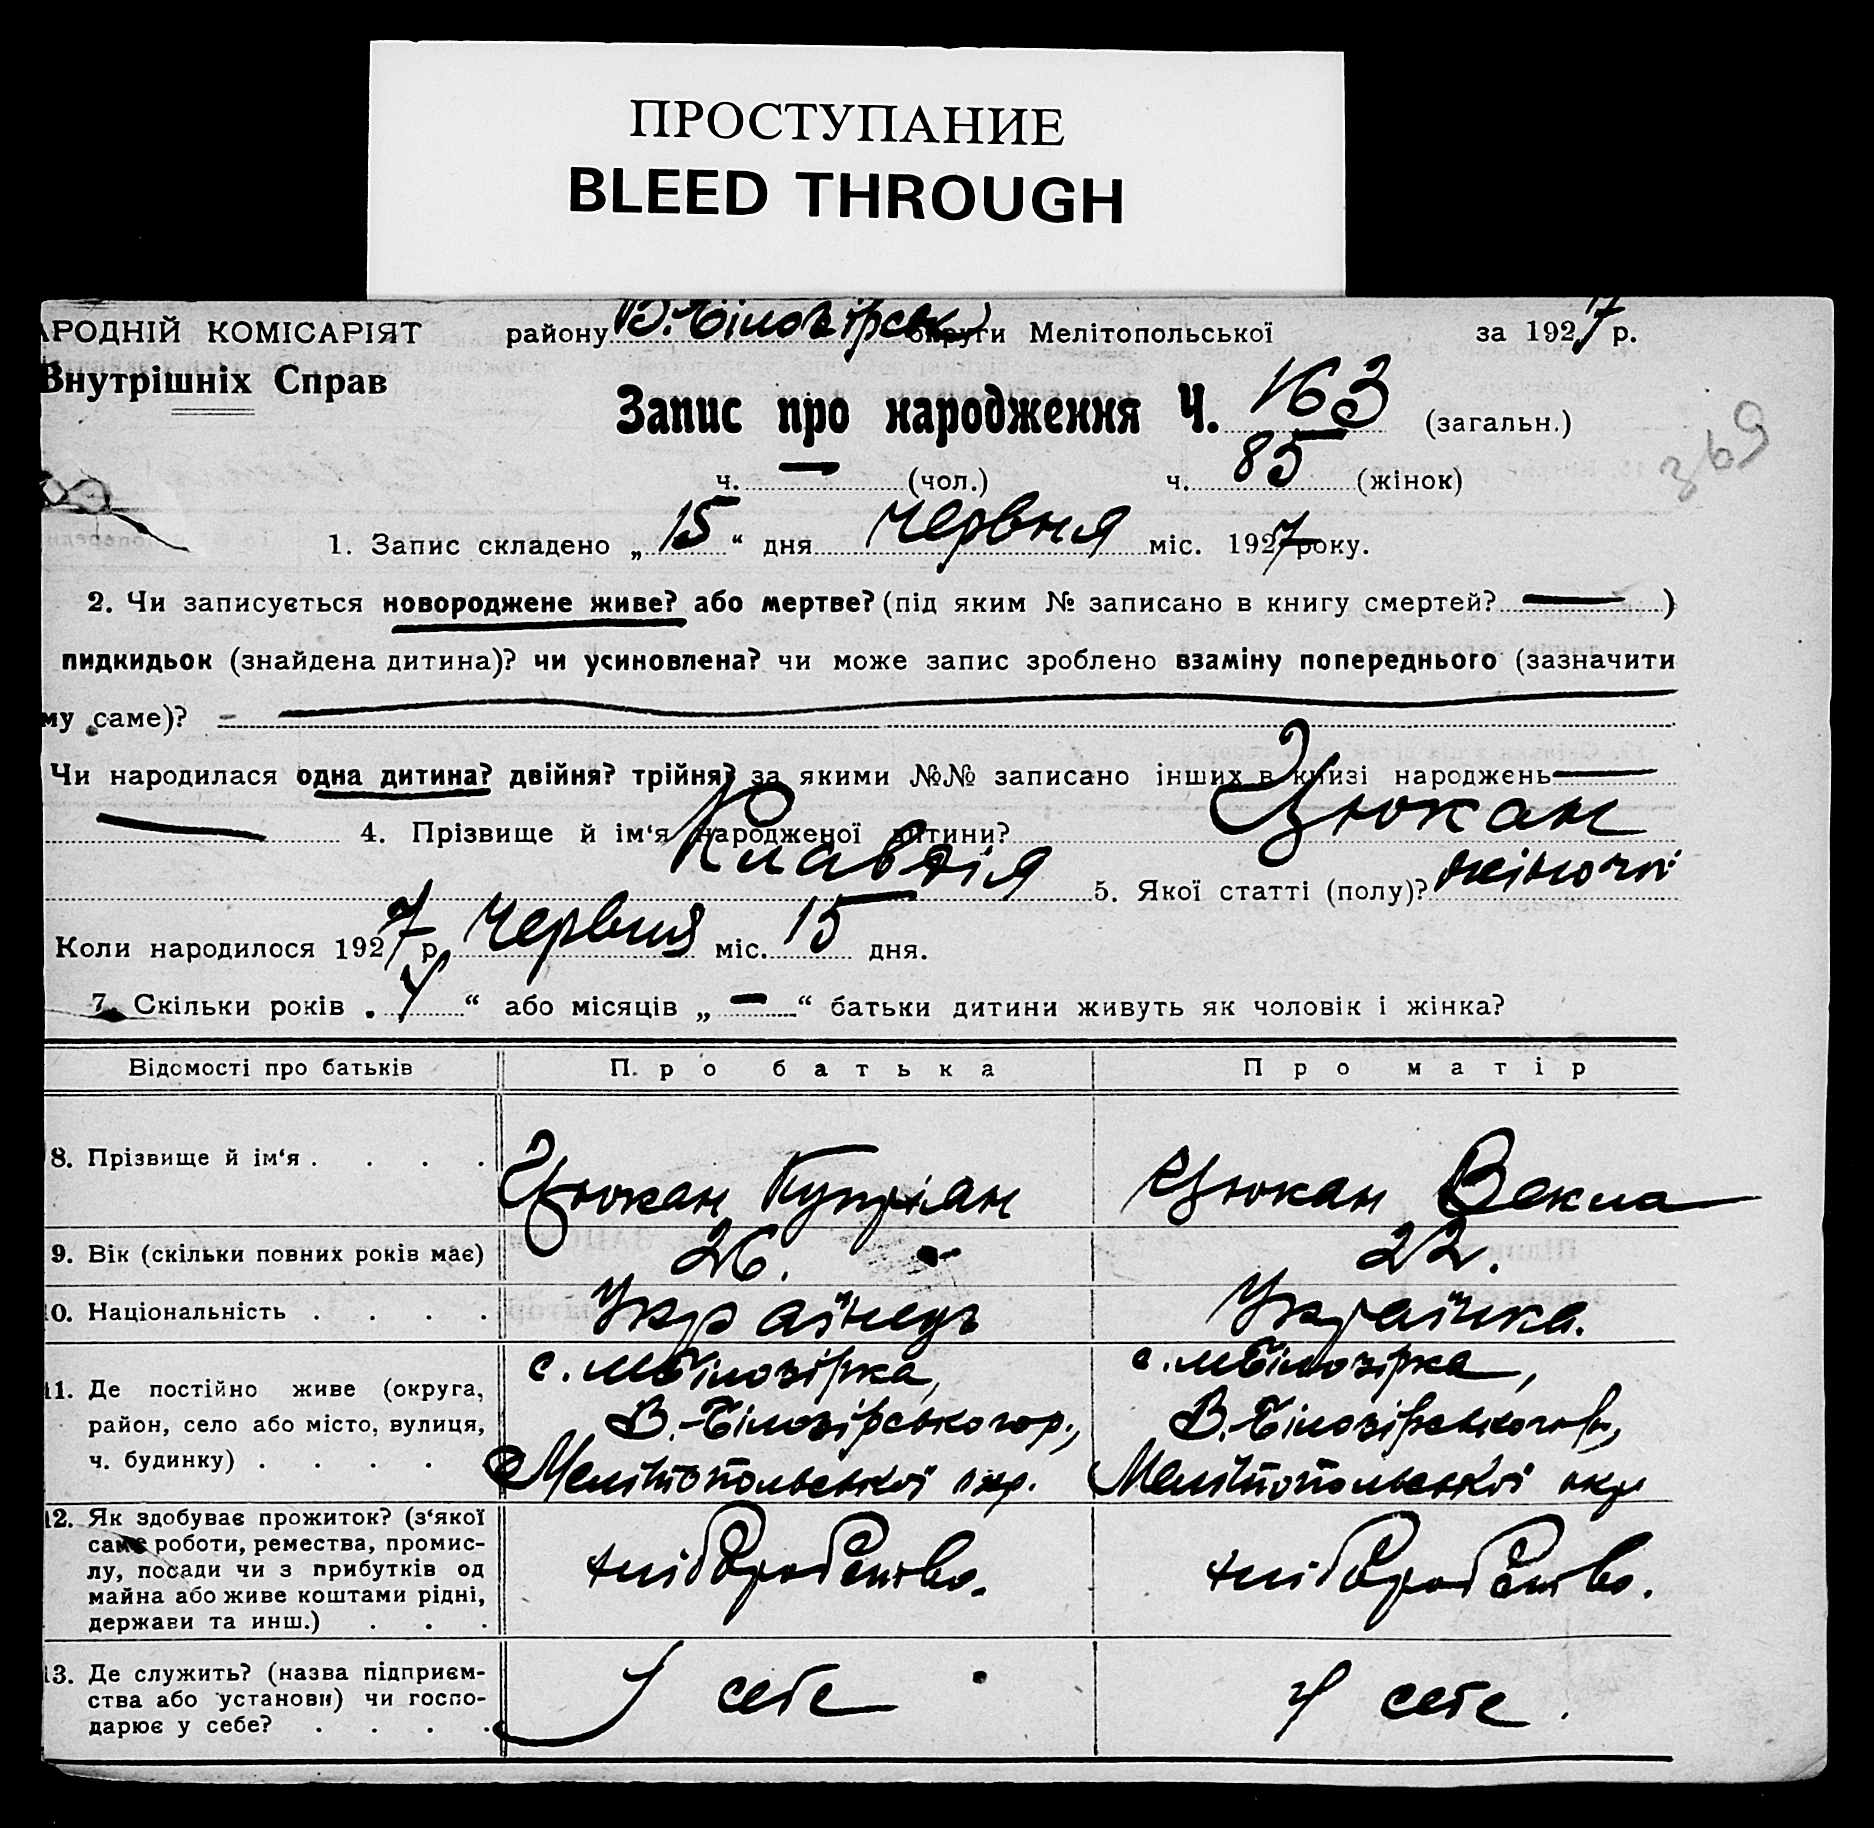 ПРОСТУПАНИЕ
BLEED THROUGH
АРОДНІЙ КОМІСАРІЯТ району В.Білозірськ округи Мелітопольської за 1927 р.
Внутрішніх Справ
Запис про народження Ч. 163 (загальн.)
369
ч. — (чол.) ч. 85 (жінок)
1. Запис складено „ 15 “ дня червня міс. 1927 року.
2. Чи записується новороджене живе? або мертве? (під яким № записано в книгу смертей? — )
пидкидьок (знайдена дитина)? чи усиновлена? чи може запис зроблено взаміну попереднього (зазначити
му саме)?
Чи народилася одна дитина? двійня? трійня? за якими №№ записано інших в книзі народжень —
— 4. Прізвище й ім‘я народженої дитини? Цюкан
Клавдія 5. Якої статті (полу)? жіночої
Коли народилося 1927 р. червня міс. 15 дня.
7. Скільки років . 4 “ або місяців „ — “ батьки дитини живуть як чоловік і жінка?
Відомості про батьків Про батька Про матір
8. Прізвище й ім‘я . . . . Цюкан Купріян Цюкан Векла
9. Вік (скільки повних років має) 26. 22.
10. Національність . . . . Українець Українка.
11. Де постійно живе (округа, с. МБілозірка, с. МБілозірка,
район, село або місто, вулиця, В.-Білозірського р., В.-Білозірського р.,
ч. будинку) . . . . Мелітопольської окр. Мелітопольської окр
12. Як здобуває прожиток? (з‘якої
саме роботи, ремества, промис-
лу, посади чи з прибутків од хліборобство. хліборобство.
майна або живе коштами рідні,
держави та инш.) . . .
13. Де служить? (назва підприєм-
ства або установи) чи госпо- У себе У себе.
дарює у себе? . . . .